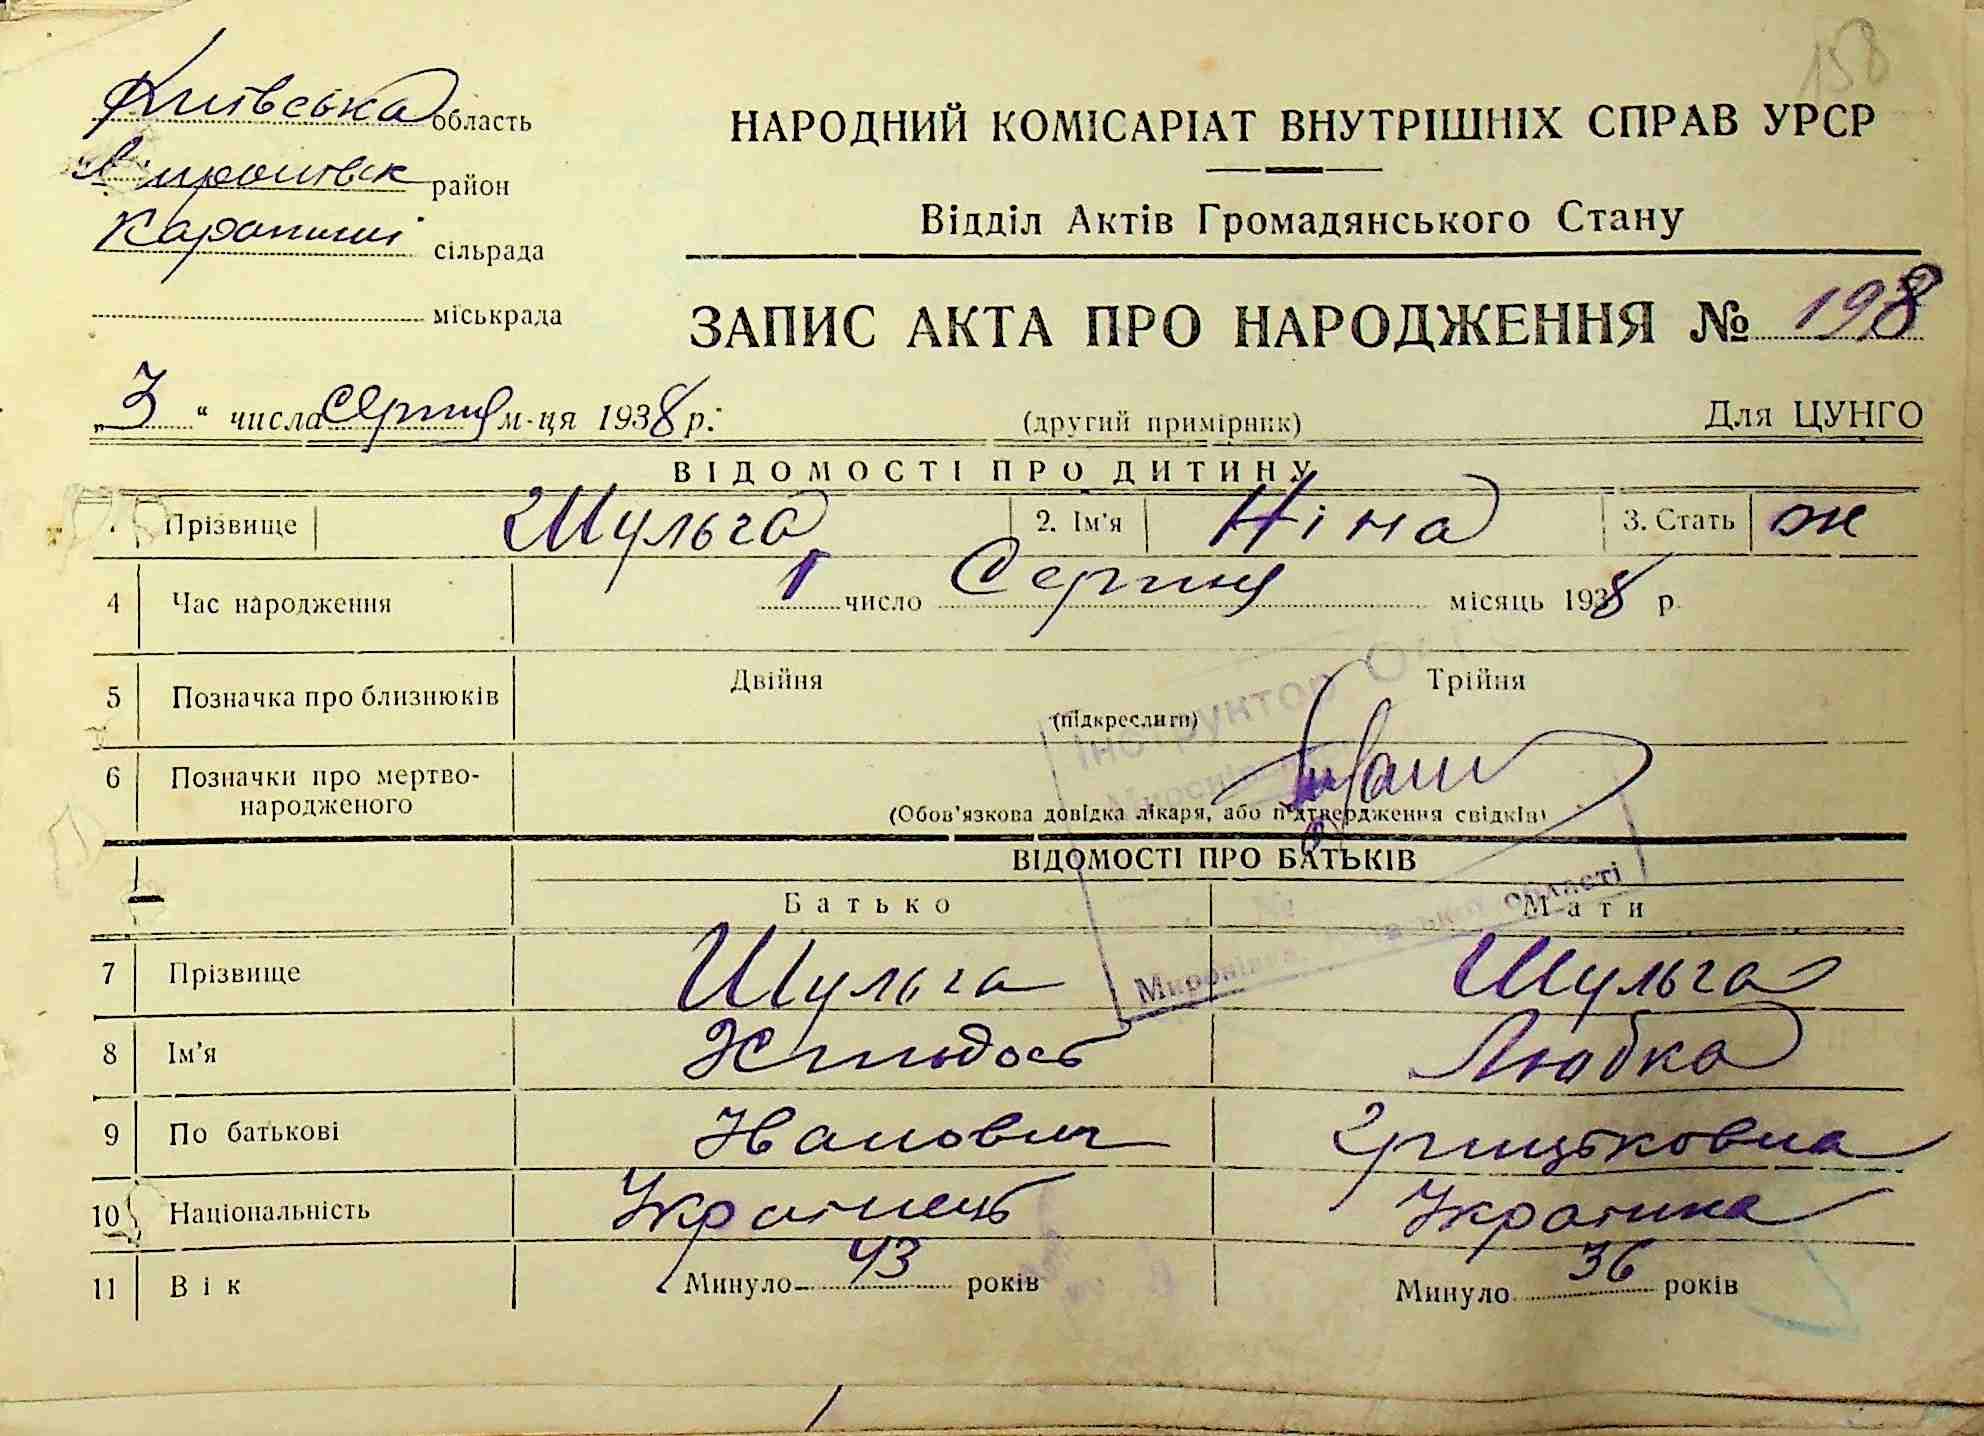 158
Київська область
НАРОДНИЙ КОМІСАРІАТ ВНУТРІШНІХ СПРАВ УРСР
район
Відділ Актів Громадянського Стану
Карапиші сільрада
міськрада
ЗАПИС АКТА ПРО НАРОДЖЕННЯ № 198
„3“ числа Серпня м-ця 1938 р.
(другий примірник)
Для ЦУНГО
ВІДОМОСТІ ПРО ДИТИНУ
Прізвище Шульга 2. Ім'я Ніна 3. Стать ж
4 Час народження 1 число Серпня місяць 1938 р.
5 Позначка про близнюків Двійня Трійня
(підкреслити)
6 Позначки про мертво-
народженого
(Обов'язкова довідка лікаря, або підтвердження свідків)
Інструктор
області
ВІДОМОСТІ ПРО БАТЬКІВ
Батько Мати
7 Прізвище Шульга Шульга
8 Ім'я Любка
9 По батькові Іванович Грицьковна
10 Національність Українець Українка
11 Вік Минуло 43 років Минуло 36 років